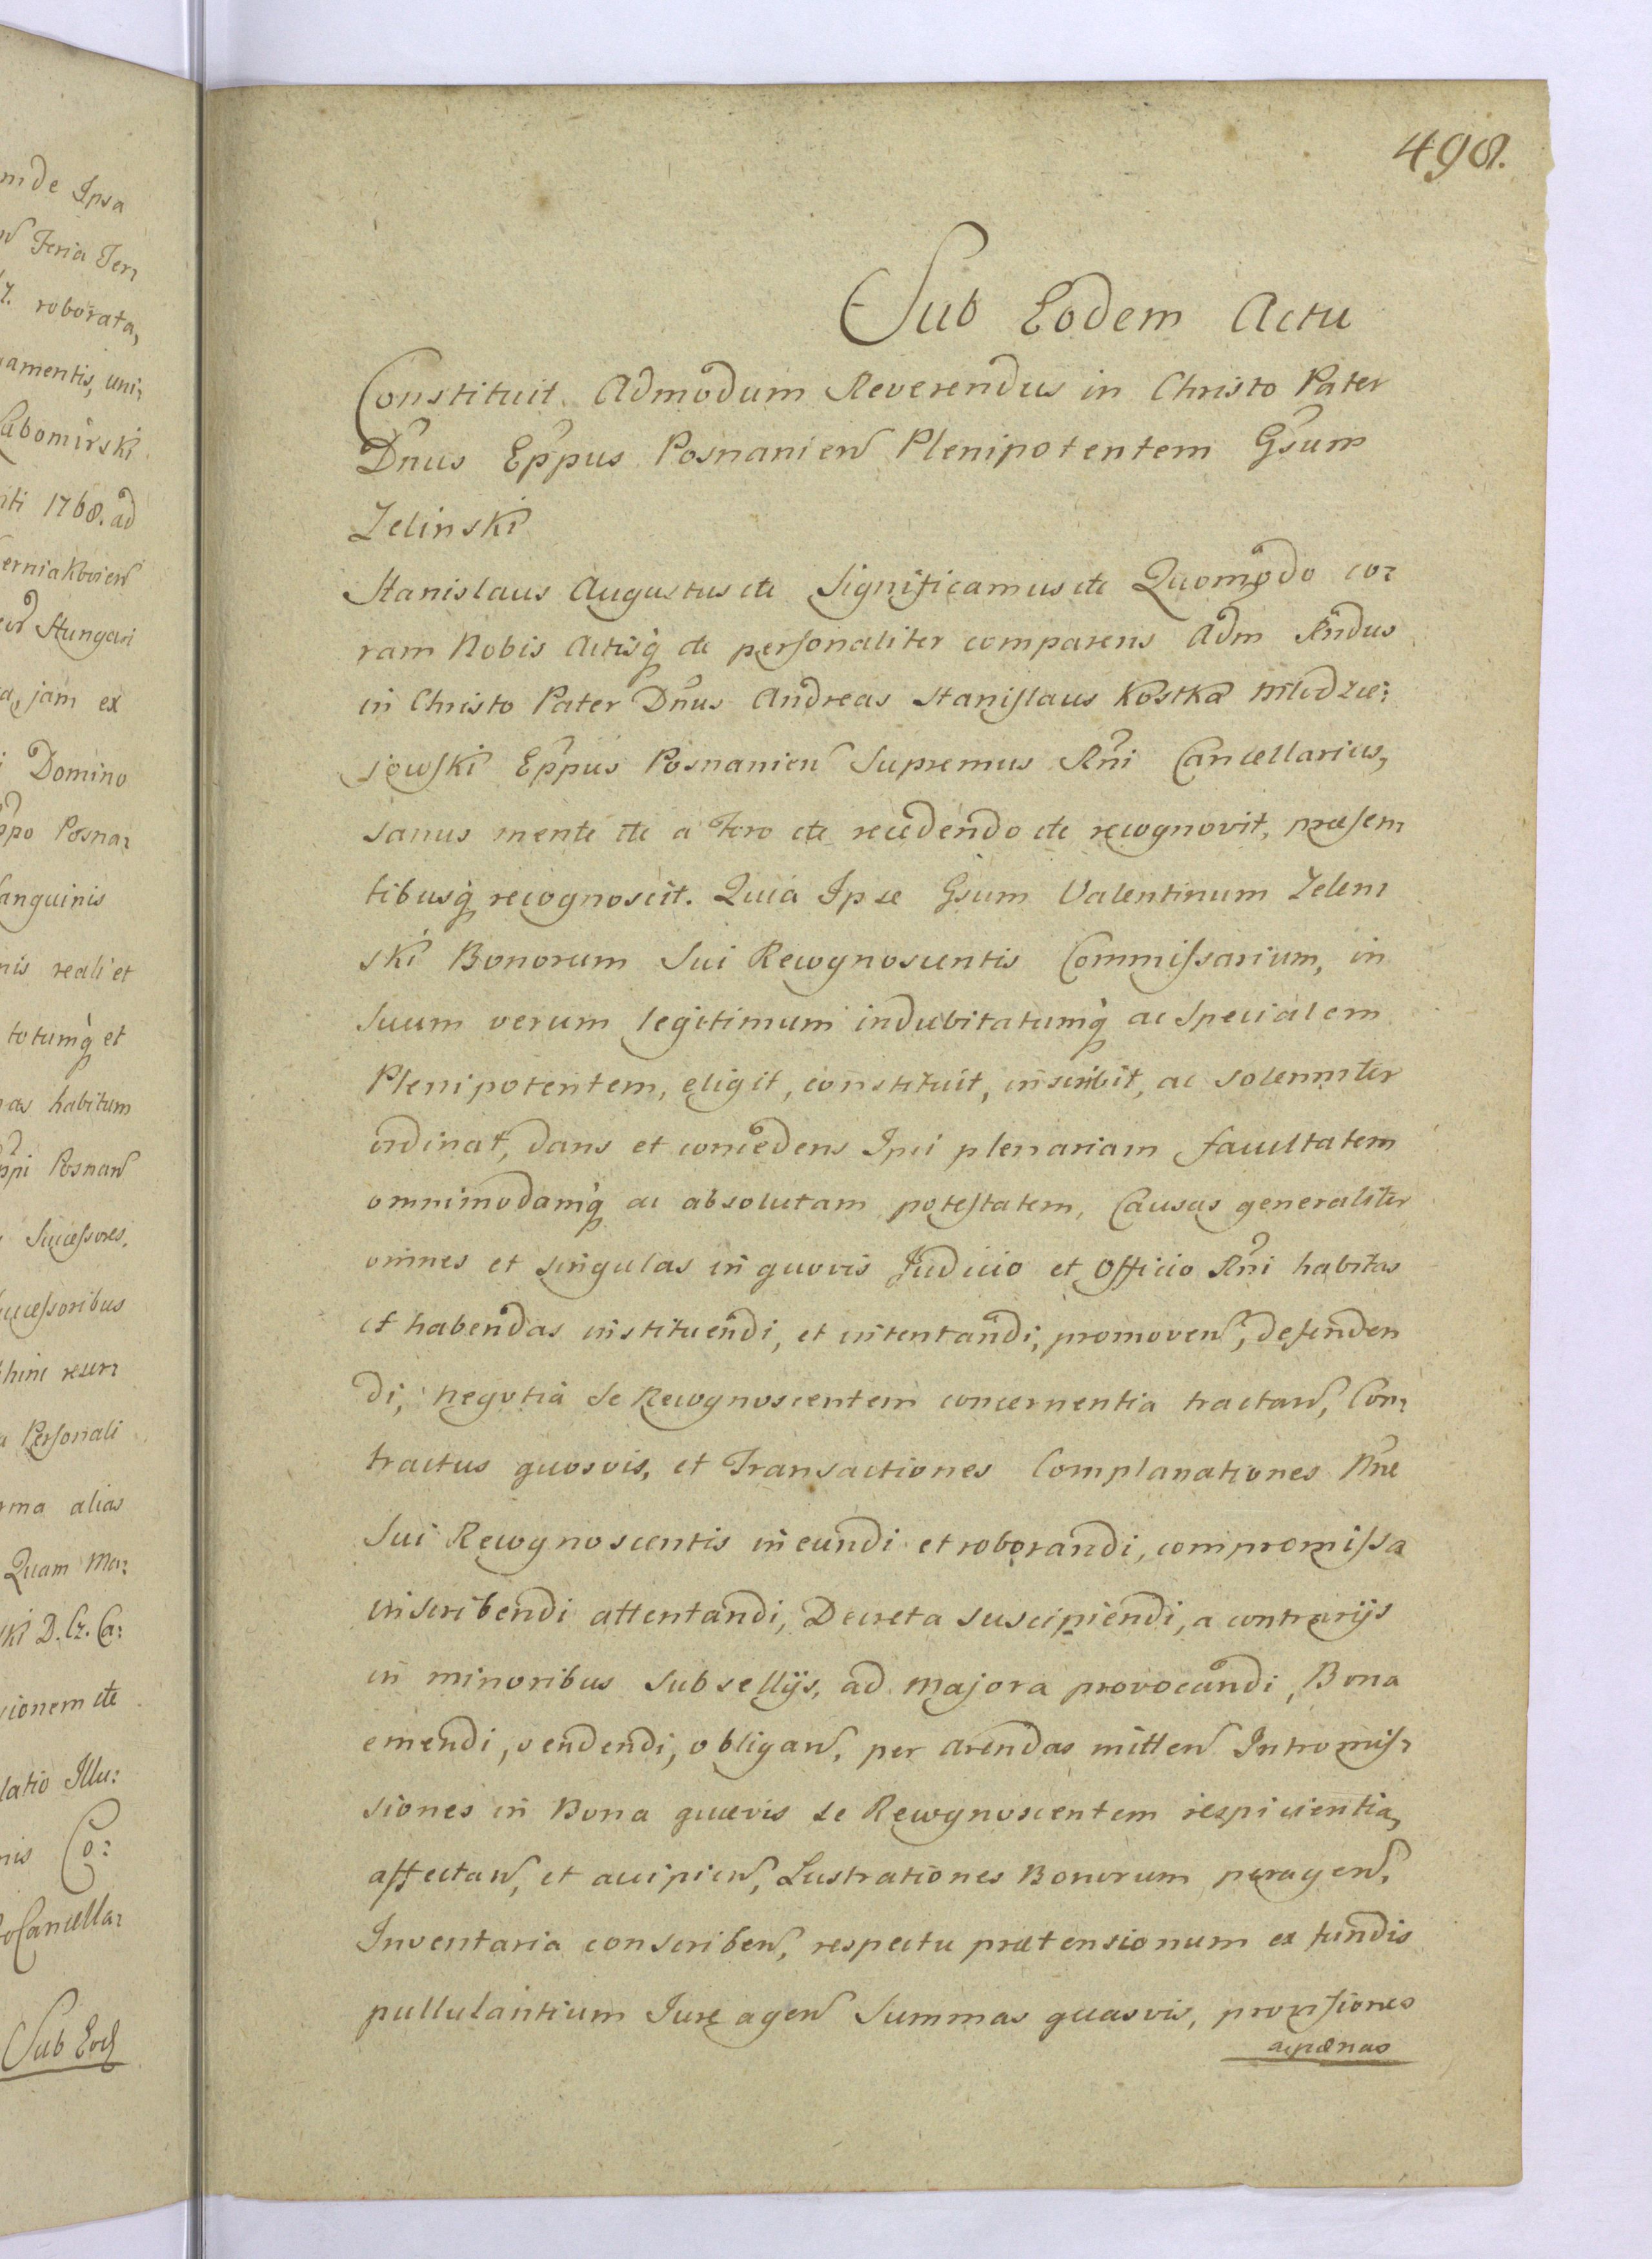 498.
Sub Eodem Actu
Constituit Admodum Reverendus in Christo Pater
Dnus Eppus Posnanien Plenipotentem Gsum
Zelinski
Stanislaus Augustus etc Significamus etc Quomodo co:
ram Nobis Actisq etc personaliter comparens Adm Rndus
in Christo Pater Dnus Andreas Stanislaus Kostka Młodzie:
jowski Eppus Posnanien Supremus Rni Cancellarius,
sanus mente etc a Foro etc recedendo etc recognovit, præsen:
tibusq recognoscit. Quia Ipse Gsum Valentinum Zelen:
ski Bonorum Sui Recognoscentis Commissarium, in
Suum verum legitimum indubitatumq ac Specialem
Plenipotentem, eligit, constituit, inscribit, ac solemniter
ordinat, dans et concedens Ipsi plenariam facultatem
omnimodamq ac absolutam potestatem, Causas generaliter
omnes et singulas in quovis Judicio et Officio Rni habitas
et habendas instituendi, et intentandi, promoven, defenden
di, negotia Se Recognoscentem concernentia tractan, Con:
tractus quosvis, et Transactiones Complanationes Nne
Sui Recognoscentis ineundi et roborandi, compromissa
inscribendi attentandi, Decreta suscipiendi, a contrarijs
in minoribus Subsellijs, ad majora provocandi, Bona
emendi, vendendi, obligan, per arendas mitten Intromis:
siones in Bona quævis Se Recognoscentem respicientia,
affectan, et accipien, Lustrationes Bonorum peragen,
Inventaria conscriben, respectu prætensionum ex fundis
pullulantium Jure agen Summas quasvis, provisiones
ac pænas